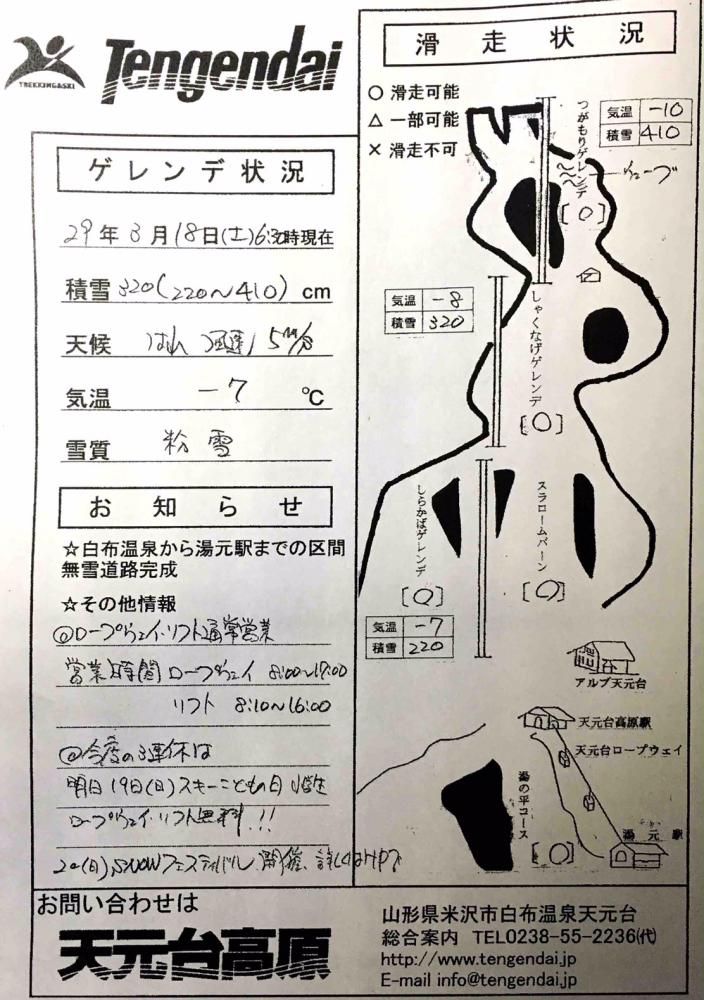 TREKKING&SKI
Tengendai
ゲレンデ状況
29年3月18日(土)6:30時現在
積雪 320(220〜410) cm
天候 はれ 風速 5m/分
気温 -7 ℃
雪質 粉雪
お知らせ
☆白布温泉から湯元駅までの区間
無雪道路完成
☆その他情報
◎ロープウェイ・リフト通常営業
営業時間 ロープウェイ 8:00〜17:00
リフト 8:10〜16:00
◎今度の3連休は
明日19日(日)スキーこどもの日 小学生
ロープウェイ・リフト無料!!
20(月)SNOWフェスティバル開催、詳しくはHPで
滑走状況
○ 滑走可能
△ 一部可能
× 滑走不可
つがもりゲレンデ
[○]
気温 -10
積雪 410
ウェーブ
気温 -8
積雪 320
しゃくなげゲレンデ
[○]
しらかばゲレンデ
[○]
スラロームバーン
[○]
気温 -7
積雪 220
アルブ天元台
天元台高原駅
天元台ロープウェイ
湯の平コース
[○]
湯元駅
お問い合わせは
天元台高原
山形県米沢市白布温泉天元台
総合案内 TEL0238-55-2236㈹
http://www.tengendai.jp
E-mail info@tengendai.jp